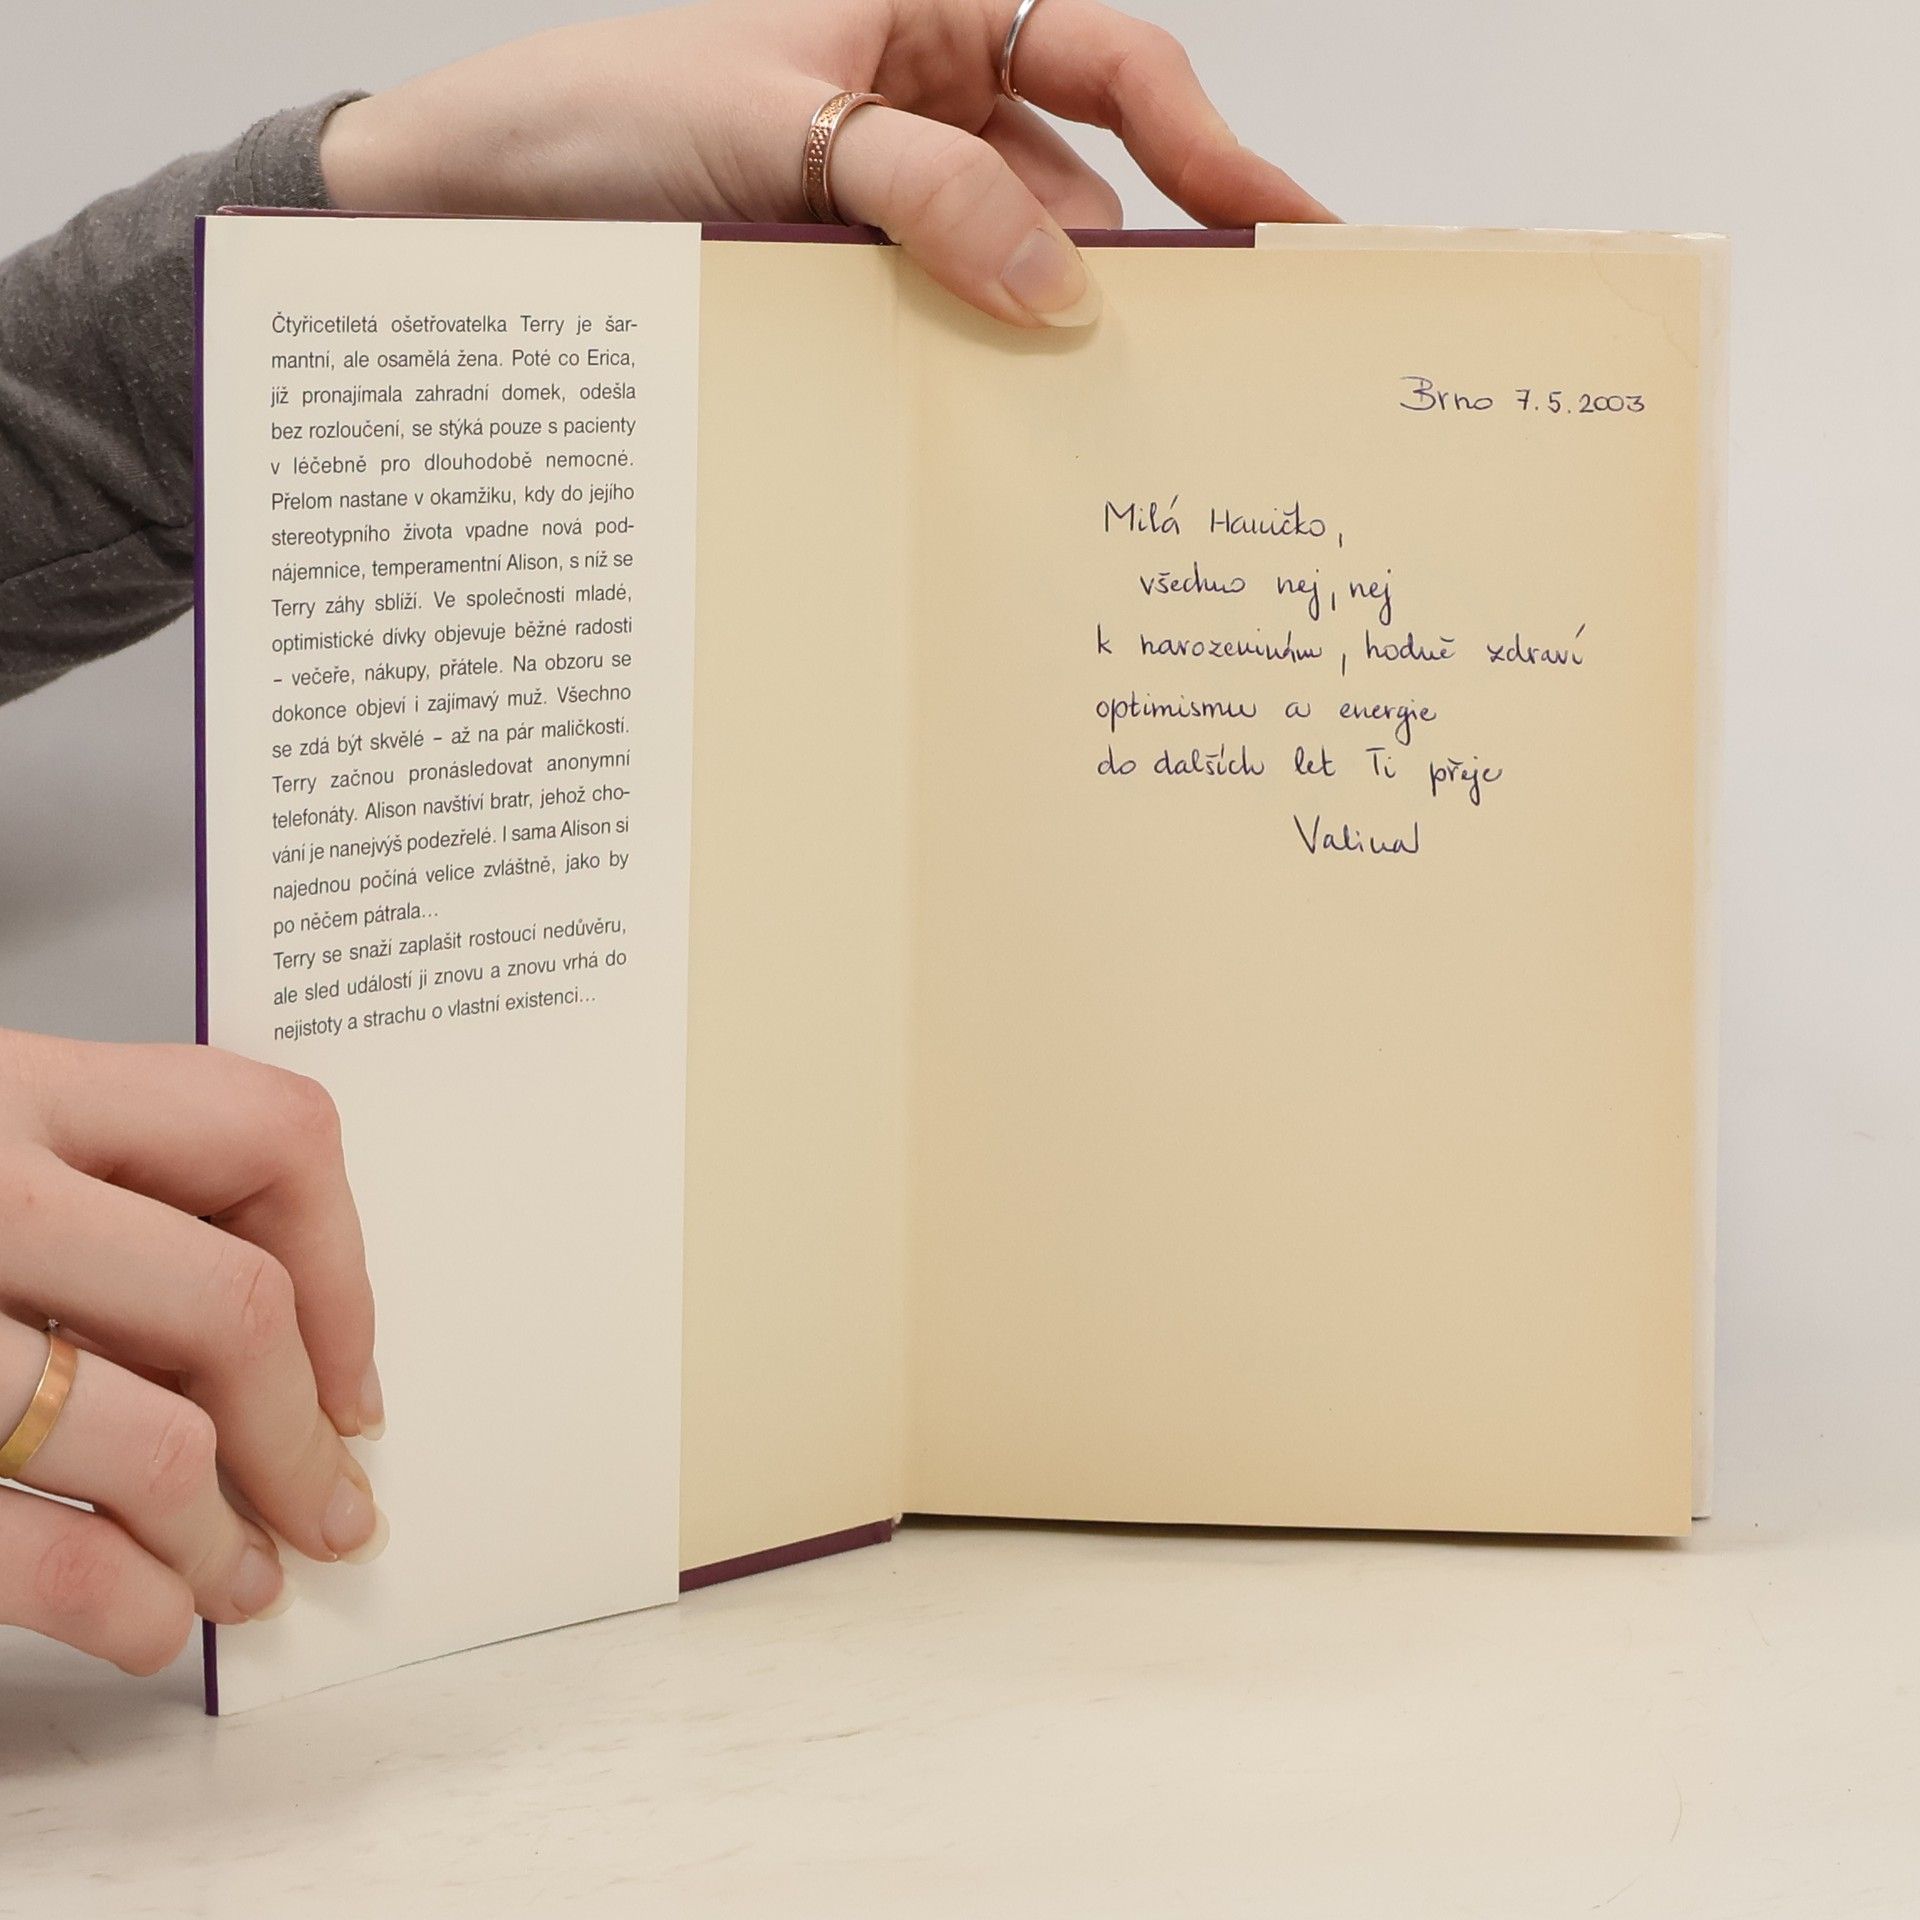 Čtyřicetiletá ošetřovatelka Terry je šar-
mantní, ale osamělá žena. Poté co Erica,
jíž pronajímala zahradní domek, odešla
bez rozloučení, se stýká pouze s pacienty
v léčebně pro dlouhodobě nemocné.
Přelom nastane v okamžiku, kdy do jejího
stereotypního života vpadne nová pod-
nájemnice, temperamentní Alison, s níž se
Terry záhy sblíží. Ve společnosti mladé,
optimistické dívky objevuje běžné radosti
– večeře, nákupy, přátele. Na obzoru se
dokonce objeví i zajímavý muž. Všechno
se zdá být skvělé – až na pár maličkostí.
Terry začnou pronásledovat anonymní
telefonáty. Alison navštíví bratr, jehož cho-
vání je nanejvýš podezřelé. I sama Alison si
najednou počíná velice zvláštně, jako by
po něčem pátrala...
Terry se snaží zaplašit rostoucí nedůvěru,
ale sled událostí ji znovu a znovu vrhá do
nejistoty a strachu o vlastní existenci...
Brno 7.5.2003
Milá Haničko,
všechno nej, nej
k narozeninám, hodně zdraví
optimismu a energie
do dalších let Ti přeje
Valina